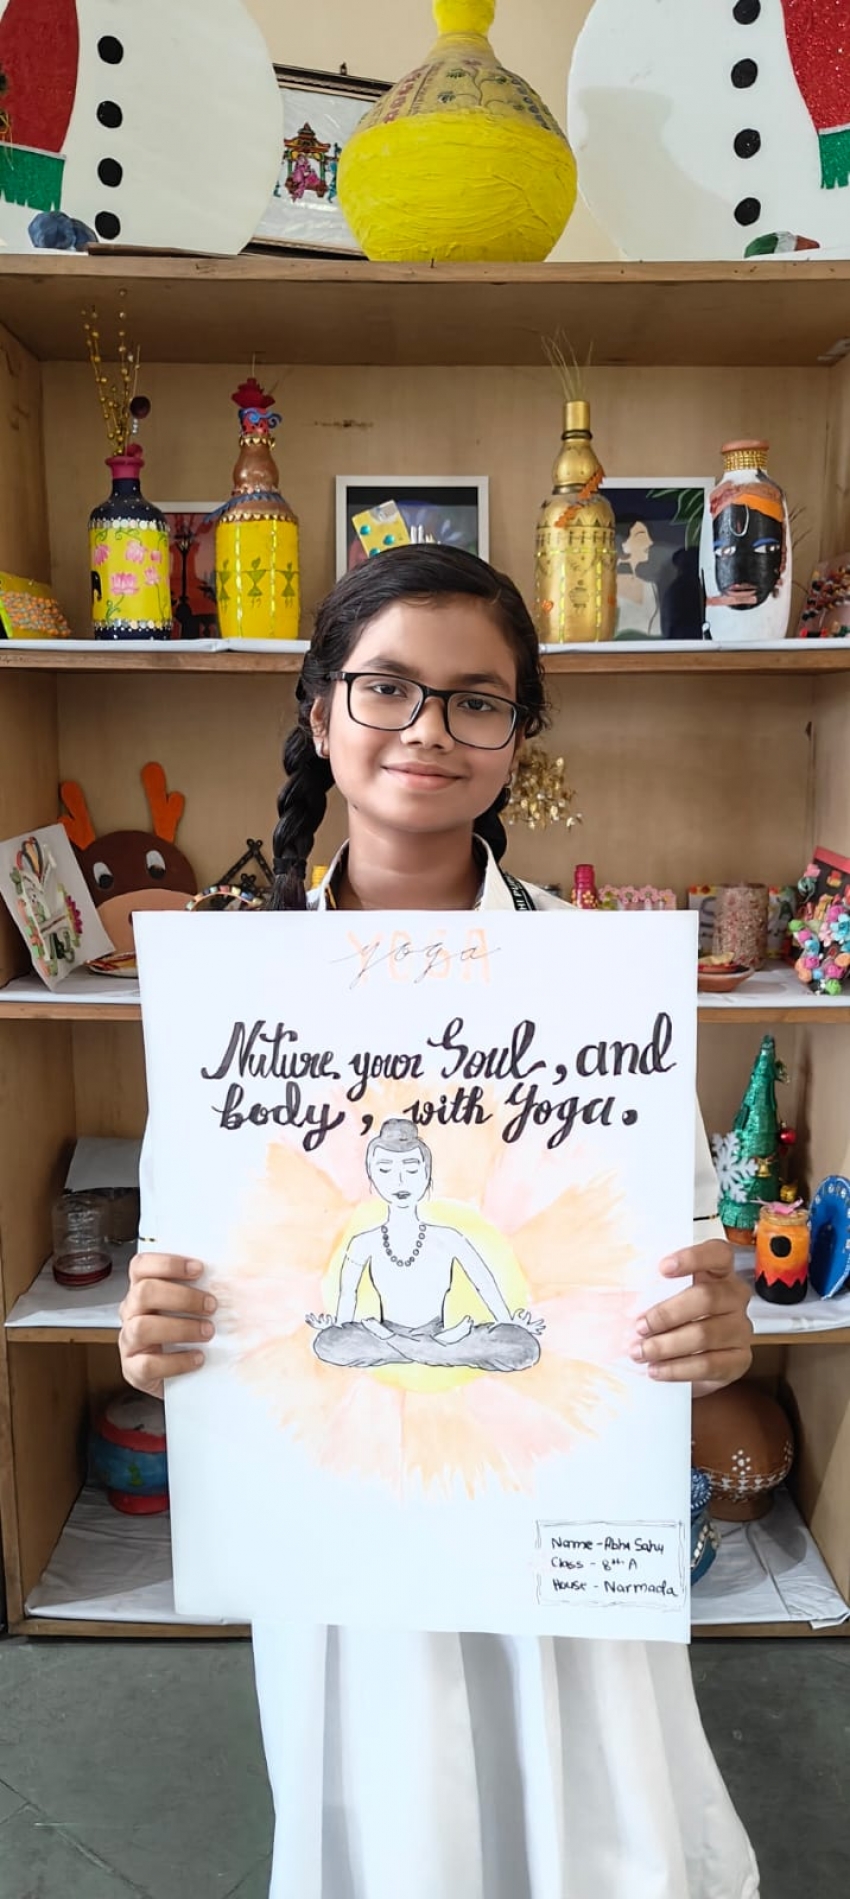 yoga
Nuture your Soul, and
body, with Yoga.
Name - Abha Sahu
Class - 8th A
House - Narmada